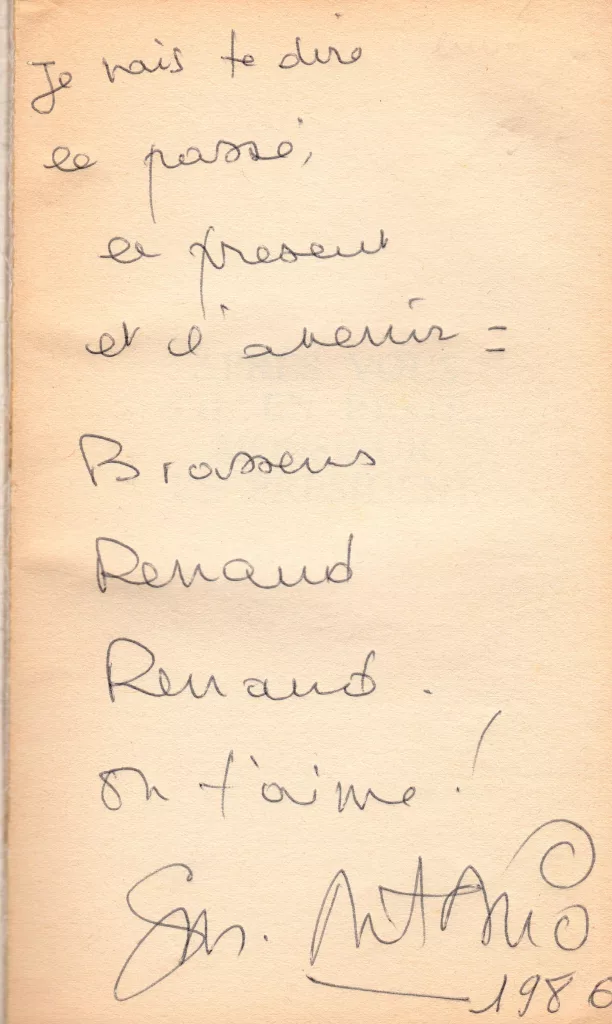 Je vais te dire
le passé,
le présent
et l'avenir =
Brassens
Renaud
Renaud.
on t'aime !
San. Antonio
1986